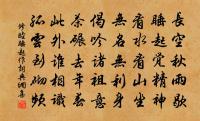 長空秋雨歇
睡起覺精神
看水看山坐
無名無利身
偈吟諸祖意
茶碾去年春
此外誰相識
孤雲到砌頻
修睦睡起作詞典網書